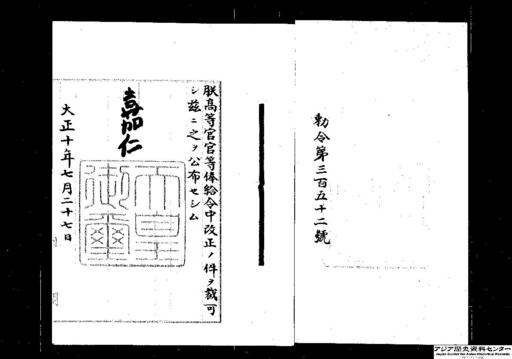 勅令第三百五十二號
朕高等官官等俸給令中改正ノ件ヲ裁可
シ茲ニ之ヲ公布セシム
嘉仁
天皇御璽
大正十年七月二十七日
アジア歴史資料センター
Japan Center for Asian Historical Records